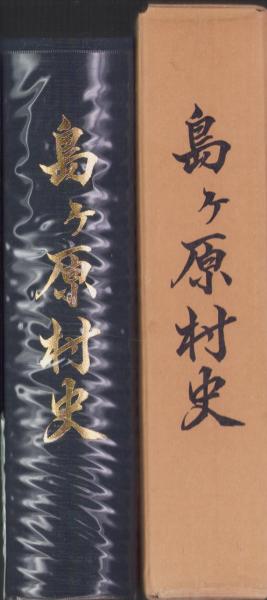 島ヶ原村史
島ヶ原村史